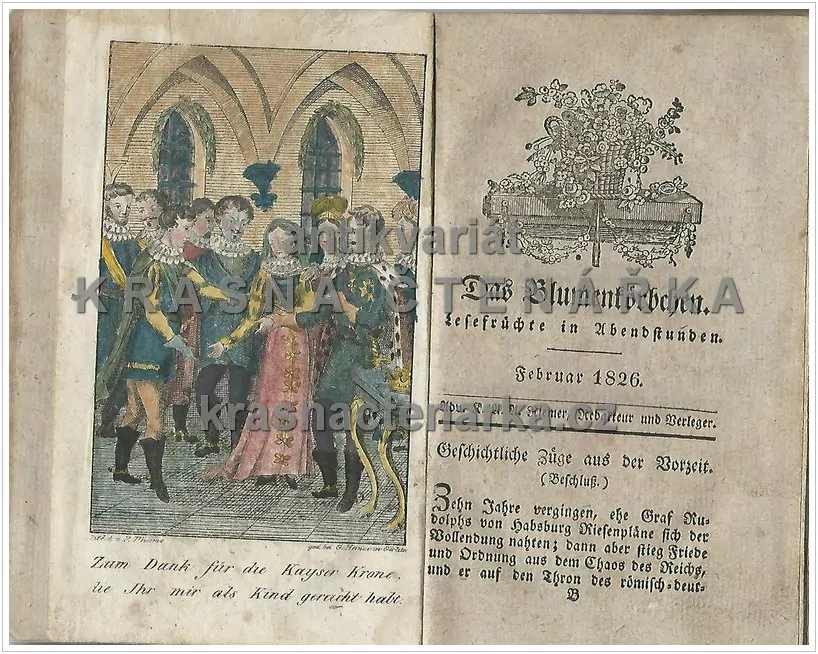 Zum Dank für die Kayser Krone,
die Ihr mir als Kind gereicht habt.
antikvariát
KRÁSNÁ ČTENÁŘKA
krasnactenarka.cz
Das Blumenkörbchen.
Lesefrüchte in Abendstunden.
Februar 1826.
Redacteur und Verleger.
Geschichtliche Züge aus der Vorzeit.
(Beschluß.)
Zehn Jahre vergingen, ehe Graf Ru-
dolphs von Habsburg Riesenpläne sich der
Vollendung nahten; dann aber stieg Friede
und Ordnung aus dem Chaos des Reichs,
und er auf den Thron des römisch-deut-
B